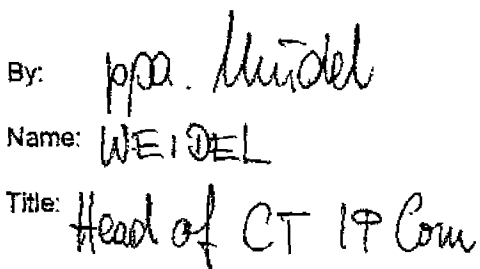 By: ppa.
Name: WEIDEL
Title: Head of CT IP Com